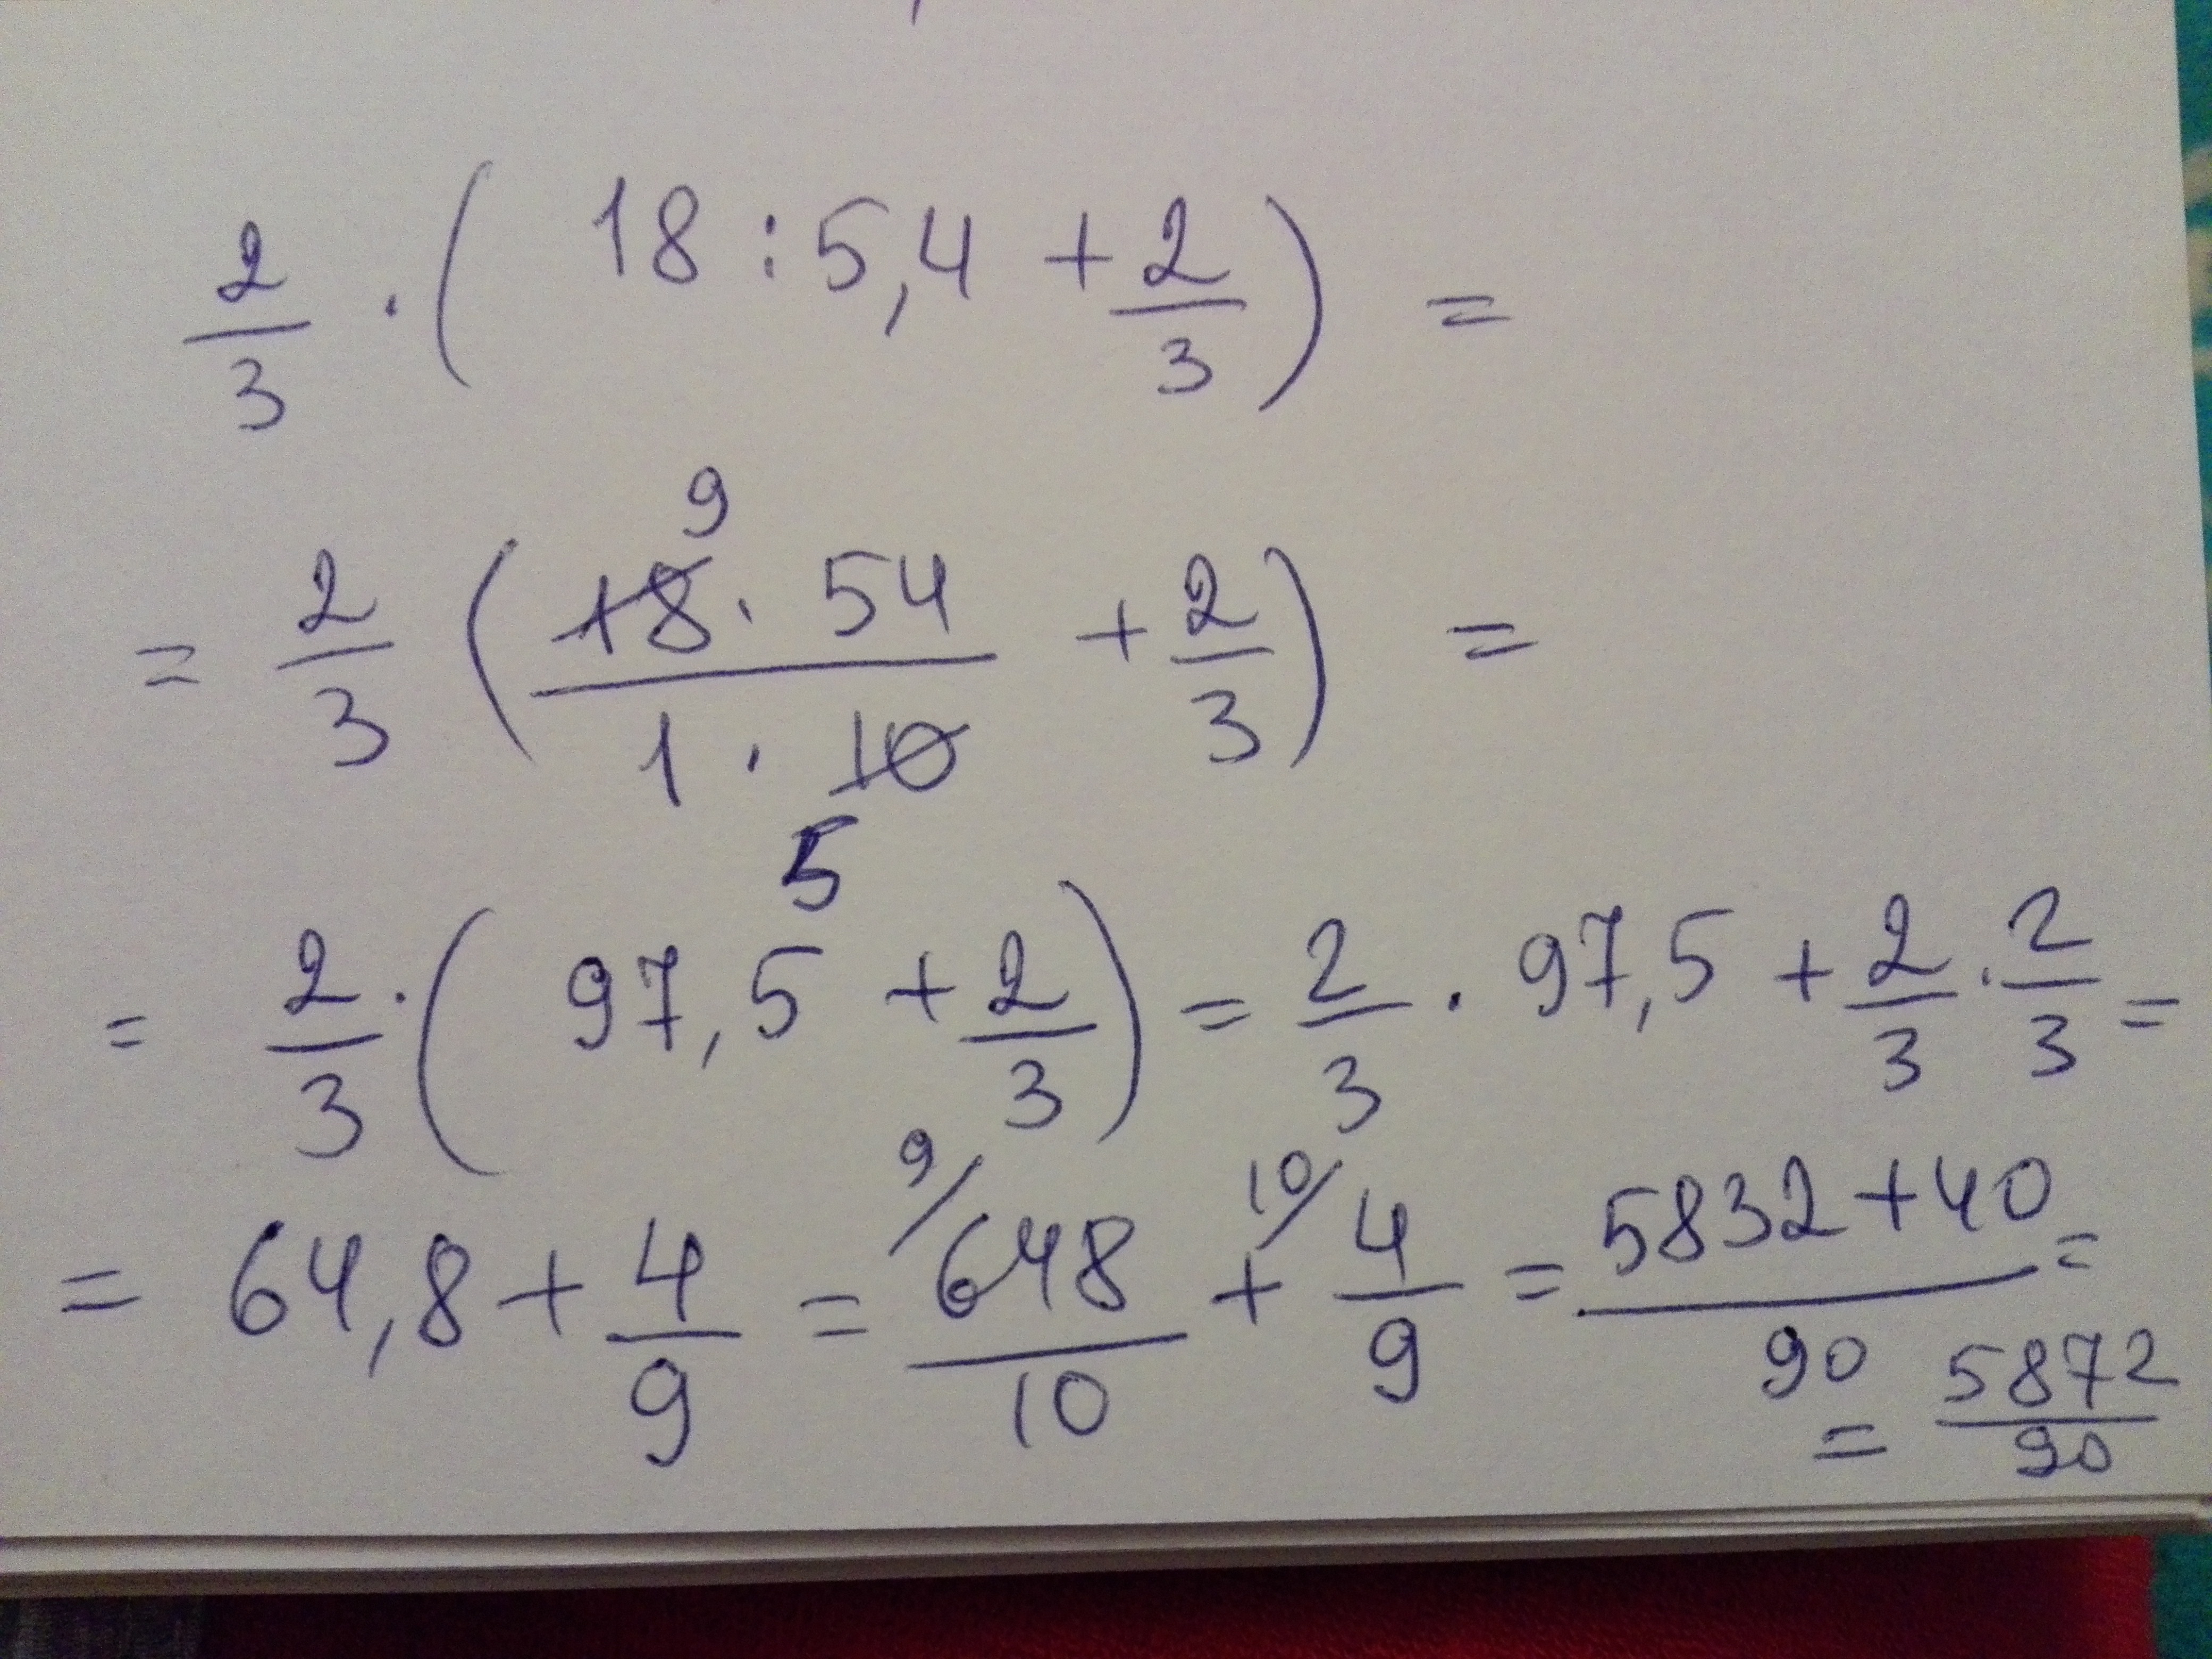 2/3 · ( 18 : 5,4 + 2/3 ) =
9
= 2/3 ( 18 · 54 / 1 · 10 + 2/3 ) =
5
= 2/3 · ( 97,5 + 2/3 ) = 2/3 · 97,5 + 2/3 · 2/3 =
= 64,8 + 4/9 = 9/ 648/10 + 10/ 4/9 = 5832 + 40 / 90 =
= 5872/90